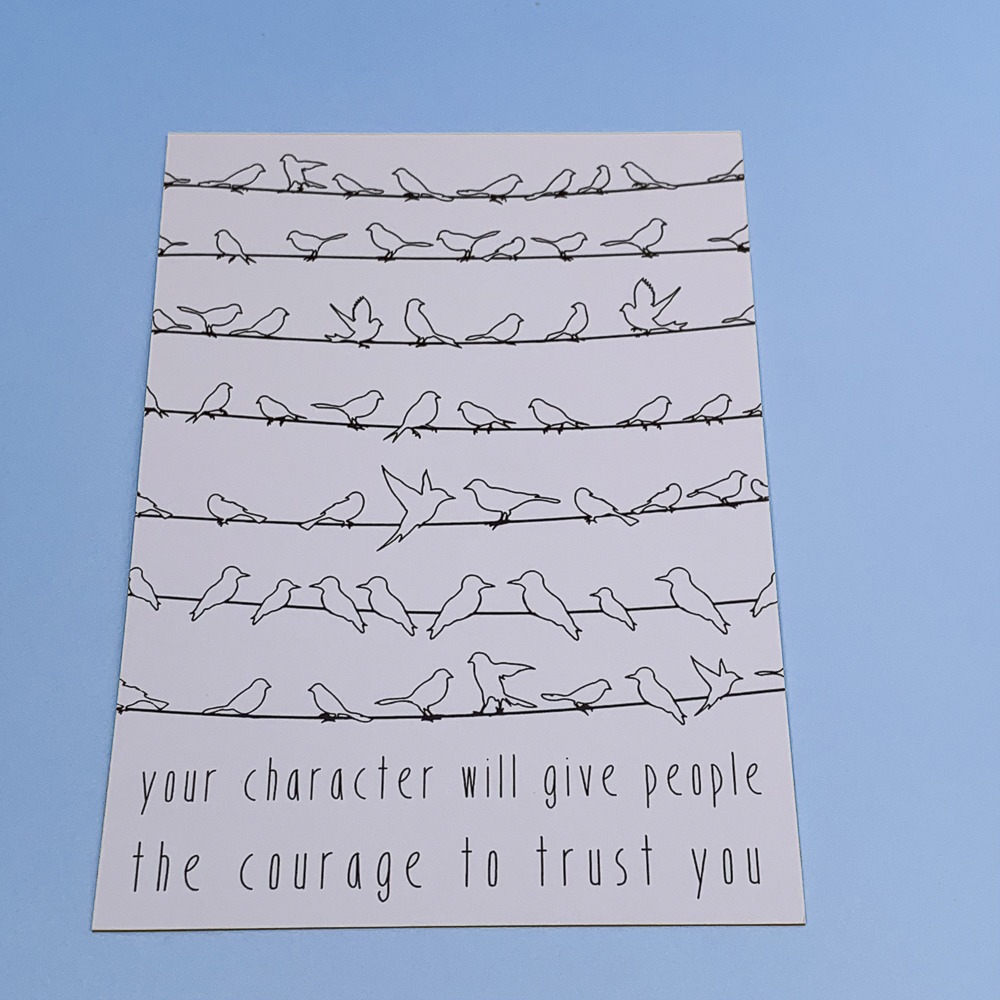 your character will give people
the courage to trust you